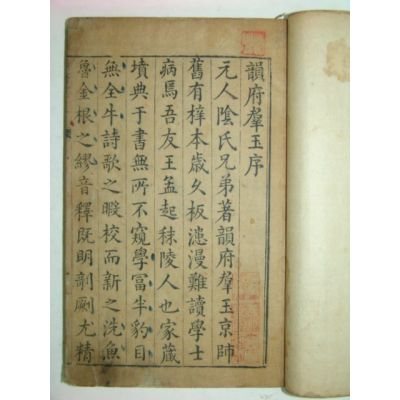 韻府羣玉序
元人陰氏兄弟著韻府羣玉京師
舊有梓本歲久板漶漫難讀學士
病焉吾友王孟起秣陵人也家藏
墳典于書無所不窺學富半豹目
無全牛詩歌之暇校而新之洗魚
魯金根之繆音釋既明剞劂尤精